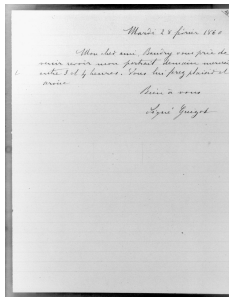 Mardi, 28 février 1860
Mon cher ami, Baudry vous prie de
venir revoir mon portrait demain mercredi
entre 3 et 4 heures. Vous lui ferez plaisir et
Bien à vous
Signé Guizot